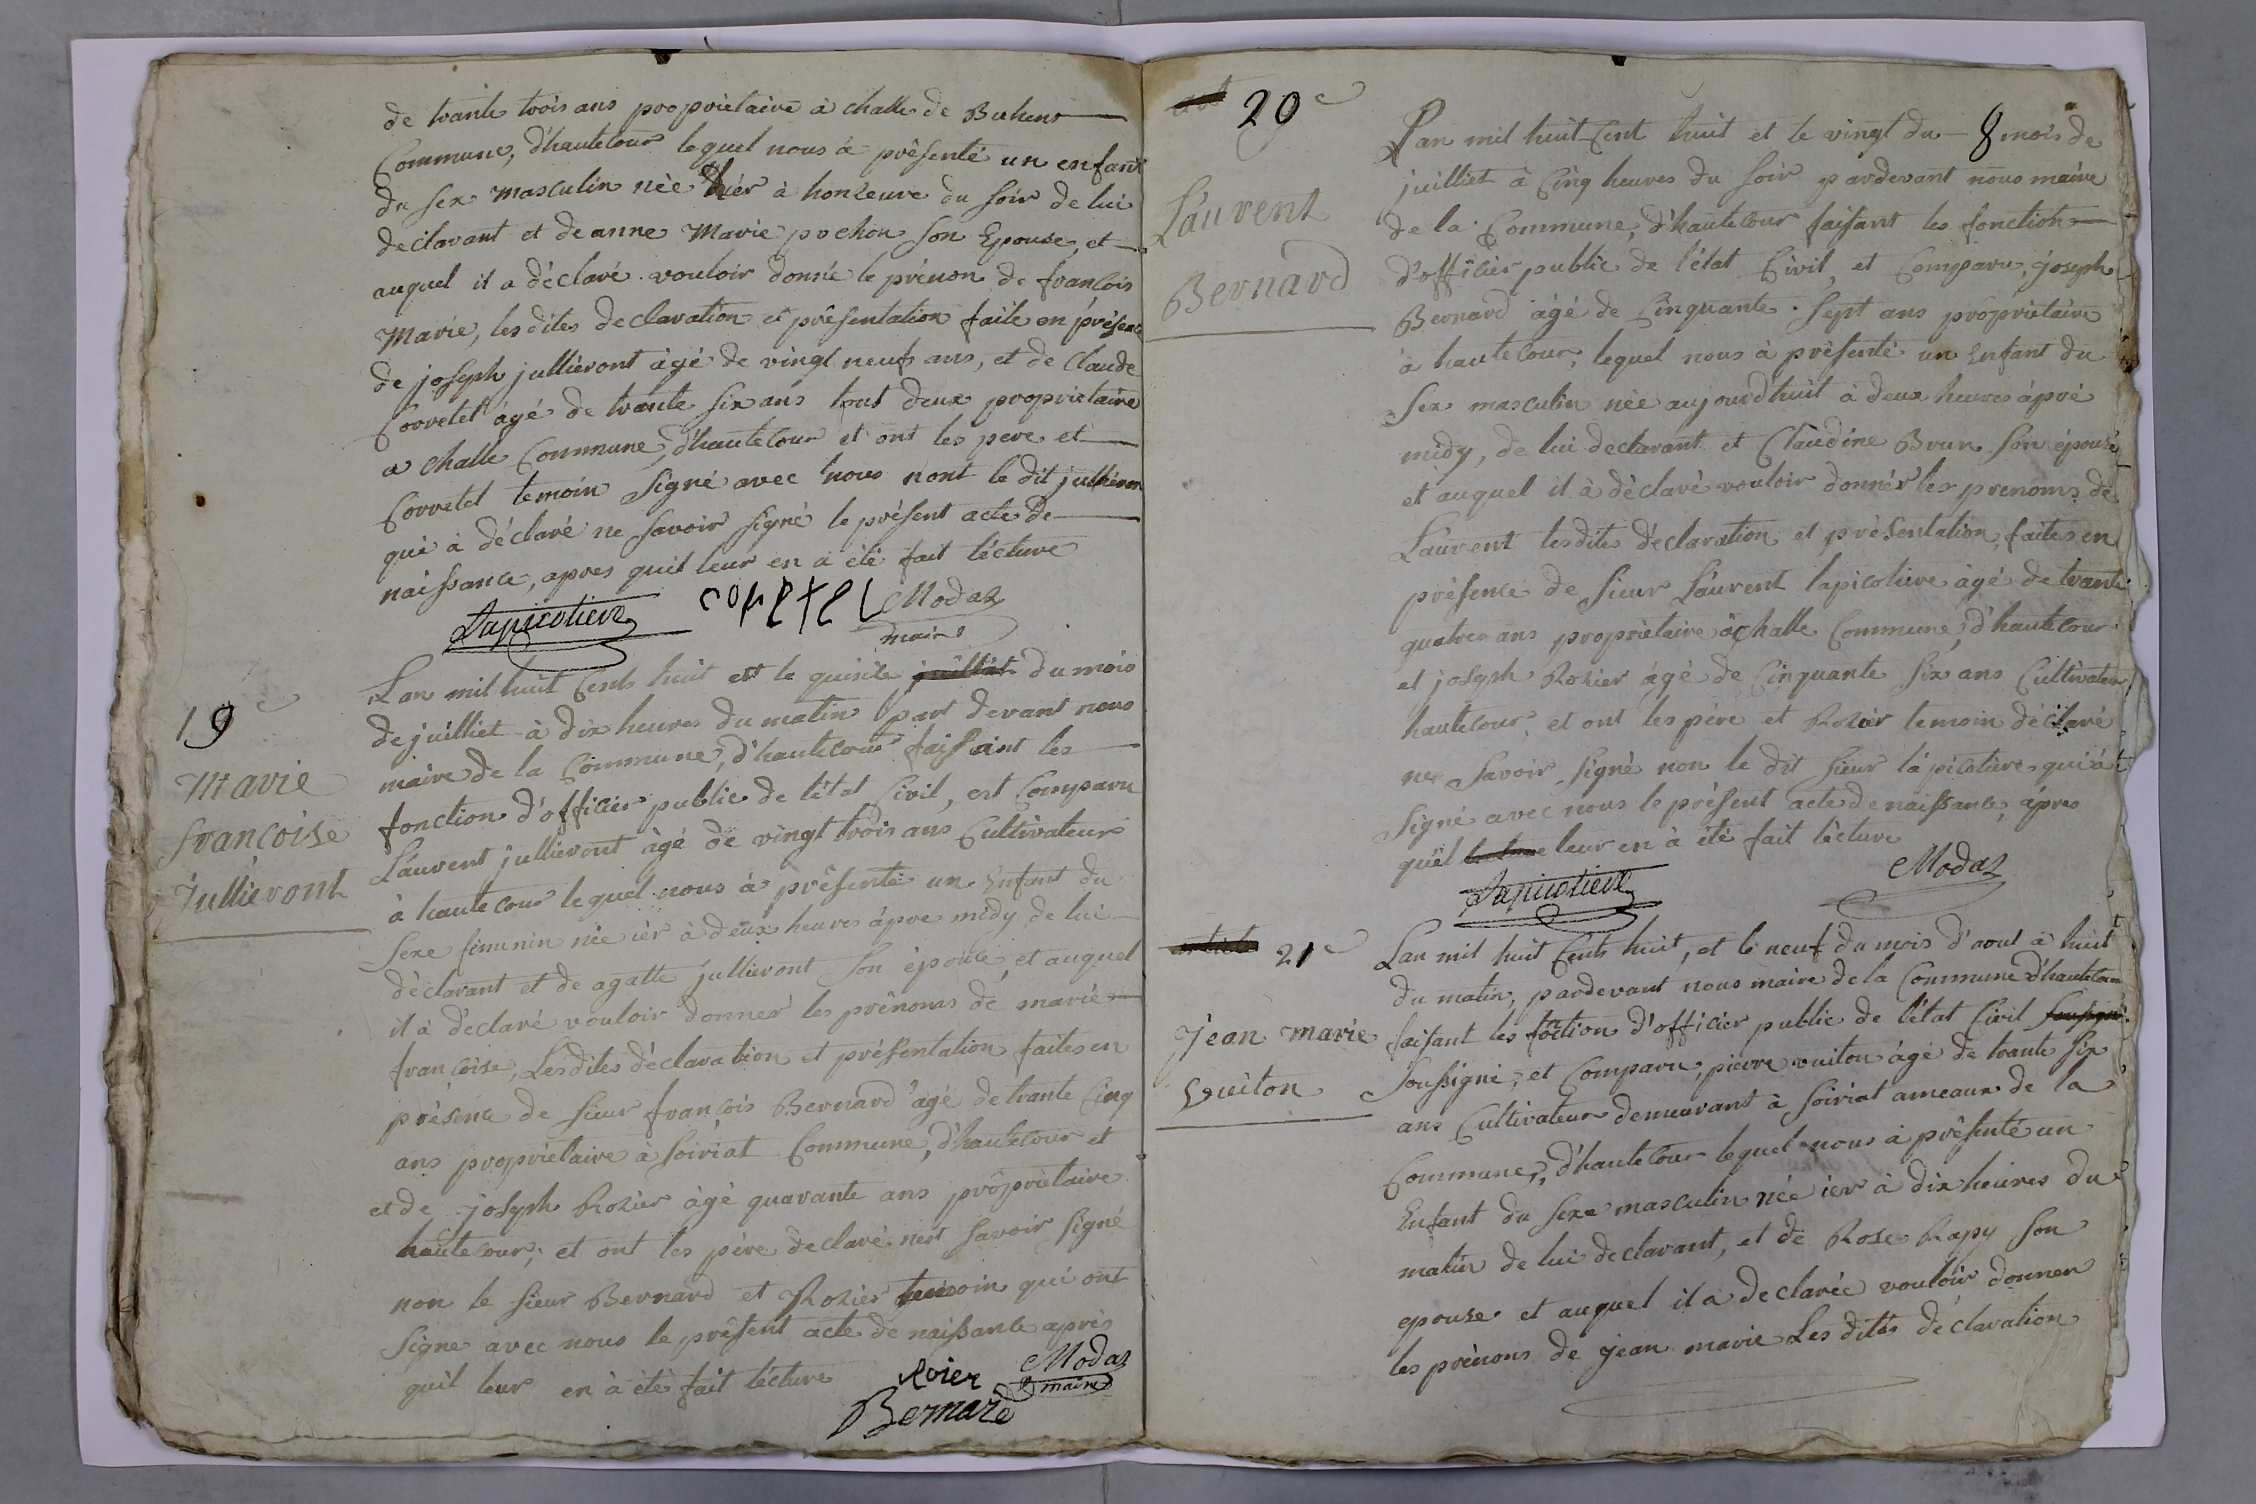 de trante trois ans propriétaire à challe de Buhens
Commune, d'hautecour lequel nous à présenté un enfant
du sex masculin née hièr à honzeure du soir de lui
declarant et de anne Marie pochon son Epouse, et
auquel il a déclaré vouloir donnée le prénon de francois
Marie, les dites declaration et présentation faite en présence
de joseph jullieront àgé de vingt neufs ans, et de Claude
Corretel àgé de trante six ans tout deux propriétaire
a challe Commune, d'hautecour et ont les pere et
Corretel temoin Signé avec nous nont le dit jullieron
qui à déclaré ne savoir signé le présent acte de
naissance, apres quil leur en à été fait lécture
Lapicotiere coretel Modas
maire
19e
Marie
francoise
Jullieront
Lan mil huit Cents huit et le quinze juilliet du mois
de juilliet à dix heures du matin part devant nous
maire de la Commune, d'hautecour faissant les
fonction d'officiér public de l'état Civil, est Comparu
Laurent jullieront àgé de vingt trois ans Cultivateur
à hautecour lequel nous à présenté un Enfant du
Sexe féminin née ièr à deux heures àpre midy de lui
déclarant et de agatte jullieront son épouse, et auquel
il à déclaré vouloir donnér les prénoms de marie
francoise, Lesdites déclaration et présentation faites en
présence de sieur francois Bernard àgé de trante Cinq
ans propriétaire à soiriat Commune, d'hautecour et
et de joseph Rozier àgé quarante ans propriètaire
hautecour, et ont les père declaré nest savoir signé
non le sieur Bernard et Rozier temoin qui ont
signe avec nous le présent acte de naissance après
quil leur en à été fait lécture
Roier Modas
maire
Bernard
20e
Laurent
Bernard
Lan mil huit Cent huit et le vingt du 8 mois de
juilliet à Cinq heures du soir pardevant nous maire
de la Commune, d'hautecour faisant les fonction
d'officièr public de l'état Civil, et Comparu, joseph
Bernard àgé de Cinquante sept ans propriètaire
à hautecour, lequel nous à présenté un Enfant du
Sex masculin née aujourd'huit à deux heures àpré
midy, de lui declarant et Claudine Brun son épouse
et auquel il à déclaré vouloir donnér les prenoms de
Laurent lesdites déclaration et présentation, faites en
présence de sieur Laurent lapicotiere àgé de trante
quatre ans propriètaire à challe Commune, d'hautecour
et joseph Rozier àgé de Cinquante six ans Cultivateur
hautecour, et ont les père et Rozier temoin déclaré
ne savoir signé non le dit sieur lapicotiere qui àt
Signé avec nous le présent acte de naissance, àpres
quél leur en à été fait lècture
Lapicotiere Modas
article 21e
Jean marie
Vuiton
Lan mil huit Cents huit, et le neuf du mois d'aout à huit
du matin, pardevant nous maire de la Commune d'hautecour
faisant les foction d'officier public de l'état Civil soussigné
soussigné, et Comparu, pierre vuiton àgé de trante six
ans Cultivateur demeurant à soiriat ameaux de la
Commune, d'hautecour lequel nous à présenté un
Enfant du sexe masculin née ier à dix heures du
matin de lui declarant, et de Rose Rapy son
epouse et auquel il a declarée vouloir donner
les prénons de jean marie Les dites déclaration